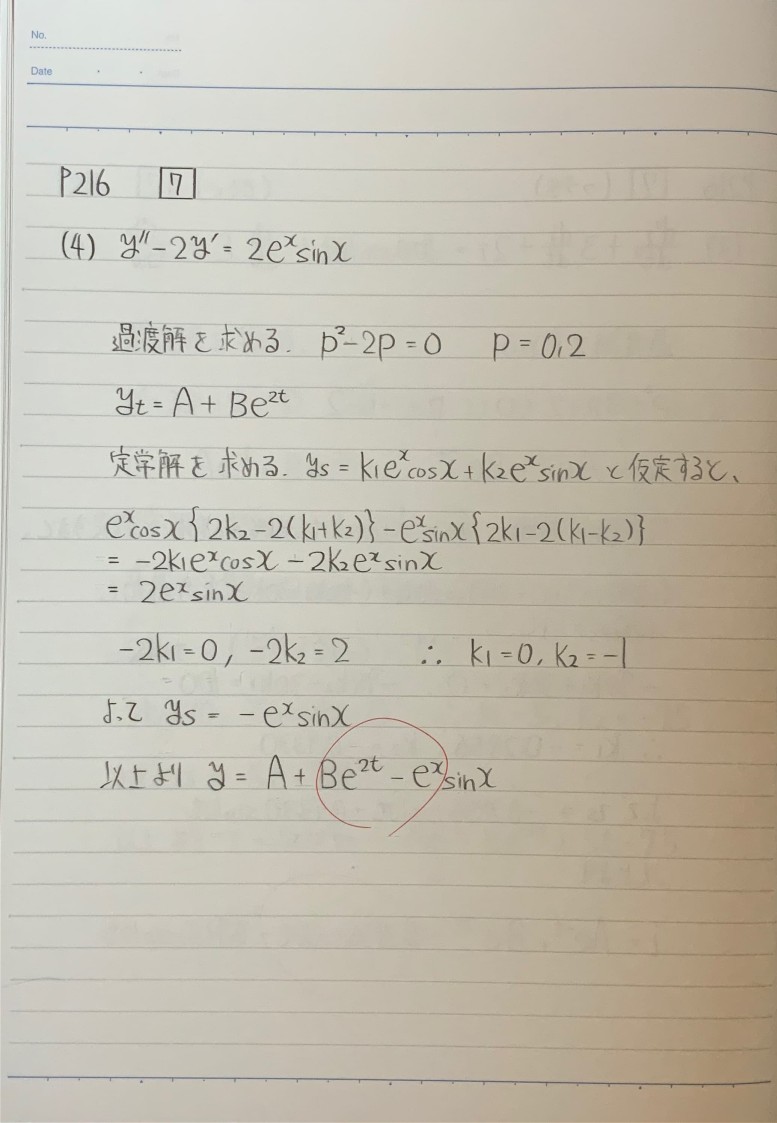 No.
Date
P216 7
(4) y''-2y' = 2eˣsinx
過渡解を求める. p²-2p=0 p=0,2
yt = A + Be²ᵗ
定学解を求める. ys = k₁eˣcosx + k₂eˣsinx と仮定すると、
eˣcosx{2k₂-2(k₁+k₂)} - eˣsinx{2k₁-2(k₁-k₂)}
= -2k₁eˣcosx - 2k₂eˣsinx
= 2eˣsinx
-2k₁=0, -2k₂=2 ∴ k₁=0, k₂=-1
よって ys = -eˣsinx
以上より y = A + Be²ᵗ - eˣsinx